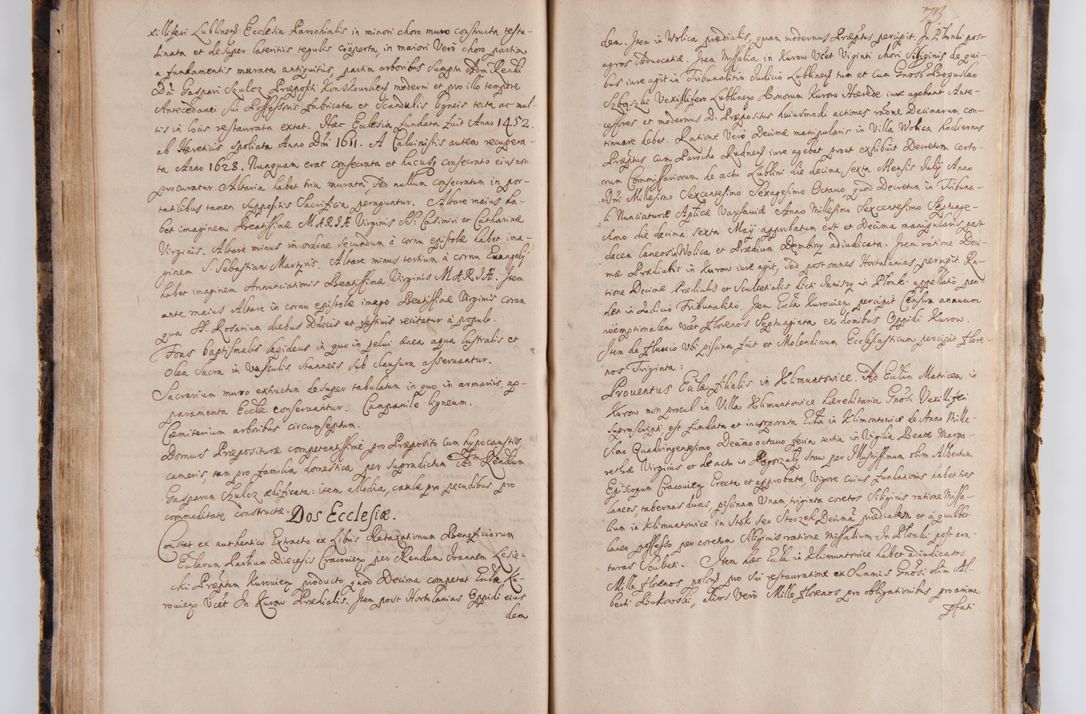 xilliferi Lublinen̄ Ecclesia Parochialis in minori choro muro constructa testu-
dinata et desuper lateritijs tegulis cooperta, in maiori Verò choro partim
à fundamentis murata antiquitus, partim arboribus sumptu Adm̄ Rendi
Dn̄i Gaspari Szulcz Præpositi Konskowolien̄ moderni et pro illo tempore
Antecedanei sui Possessoris fabricata et Scandulis ligneis tecta ac mul-
tis in locis restaurata extat. Hæc Ecclesia fundata fuit Anno 1452.
ab Hæreticis spoliata Anno Dn̄i 1611. A Caluinistis autem recupera-
ta Anno 1628. Nunquam erat consecrata et hucusq consecratio eius non
procuratur. Altaria habet tria murata, sed nullum consecratum in por-
tatilibus tamen suppositis Sacrificia peraguntur. Altare maius ha-
bet imaginem Beatissimæ MARIÆ Virginis SS. Casimiri et Catharinæ
Virginis. Altare minus in ordine secundum à cornu epistolæ habet ima-
ginem S. Sebastiani Martyris. Altare minus tertium à cornu Euangelij
habet imaginem Annunciationis Beatissimæ Virginis MARIÆ. Item
ante maius Altare in cornu epistolæ imago Beatissimæ Virginis coram
qua SS. Rosarium diebus Dn̄icis et festiuis recitatur à populo.
Fons baptismalis lapideus in quo in pelui ænea aqua lustralis et
Olea Sacra in Vasculis Stanneis sub clausura asseruantur.
Sacrarium muro extructum desuper tabulatum in quo in armarijs ap-
paramenta Ecclæ conseruantur. Campanile ligneum.
Cæmiterium arboribus circumseptum.
Domus Præposituræ competentissimè pro Præposito cum hypocaustis,
cameris, tum pro familia domestica per supradictum Adm̄ Rendum
Gasparum Szulcz ædificata: item allodia, caulæ pro pecudibus pro
commoditate constructæ.
Dos Ecclesiæ.
Constat ex authentico Extracto ex Libris Retaxationum Beneficiorum
Eccliarum Parlium Diæcesis Cracouien̄ per Rendum Joannem
cki Præptum Kurouien̄ producto, quod Decima competat Ecclæ Ku-
rouien̄ Vcet In Kurow Prædialis. Item post Hortulanias Oppidi eius
dem
73
dem. Item in Wolica prædialis, quam modernus Præptus percipit. In Płonki post
agros Aduocatiæ. Item Missalia in Kurow Vcet Viginti Chori Siliginis de qui-
bus iure agit in Tribunalitio Judicio Lublinen̄ tum et cum Gnoso Boguslao
Zbąszki Vexillifero Lublinen̄ Bonorum Kurow Hærede iure agebant Ante-
cessores et modernus Dn̄s Præpositus huiusmodi actiones ratione Decimarum con-
tinuare debet. Ratione Verò Decimæ manipularis in Villa Wolica hodiernus
Præptus cum Parocho Rudnen̄ iure agebat prout exhibuit Decretum certo-
rum Commissariorum de actu Lublini die decima sexta Mensis Julij Anno
Dn̄i Millesimo Sexcentesimo Sexagesimo Octauo quod Decretum in Tribuna-
li Nunciaturæ Aplicæ Varsauiæ Anno Millesimo Sexcentesimo Septuage-
simo die decima sexta Maij approbatum est et Decima manipularis post
decem laneos in Wolica et Prædium Dembiny adiudicata. Item ratione Deci-
mæ Prædialis in Kurow iure agit, sed post omnes Hortulanias percipit. Ra-
tione Decimæ Prædialis et Scultetialis dicti in Płonki appellatio pen-
det in Judicio Tribunalitio. Item Eccla Kurouien̄ percipit Censum annuum
reemptionalem Vcet Florenos Septuaginta ex domibus Oppidi Kurow.
Item de fluuio ubi piscina fuit et Molendinum Ecclesiasticum percipit Flore-
nos Triginta:
Prouentus Ecclæ filialis in Klimuntowice. Ad Ecclam Matricem in
Kurow non procul in Villa Klimuntowice hæreditaria Gnosi Vexilliferi
suprascripti est fundata et incorporata Eccla in Klimuntowice de Anno Mille-
simo Quadringentesimo Decimo octauo feria tertia in Vigilia Beatæ Marga-
rethæ Virginis et de actu in per Illustrissimum olim Albertum
Episcopum Cracouien̄ Erecta et approbata, Vigore cuius fundationis habet tres
laneos, tabernas duas, piscinam Vnam, triginta coretos Siliginis ratione Missa-
lium in Klimuntowice in Stok seu Stoczek Decimam prædialem et à quolibet
laneo possesso per coretum Siliginis ratione Missalium. In Płonki post
turas Sculteti. Item hæc Eccla in Klimuntowice habet diiudicatos
Mille florenos polon̄ pro sui restauratione ex Summis Gnosi olim Al-
berti Bukowski, alios Verò Mille florenos pro obligationibus pro anima
Pfati